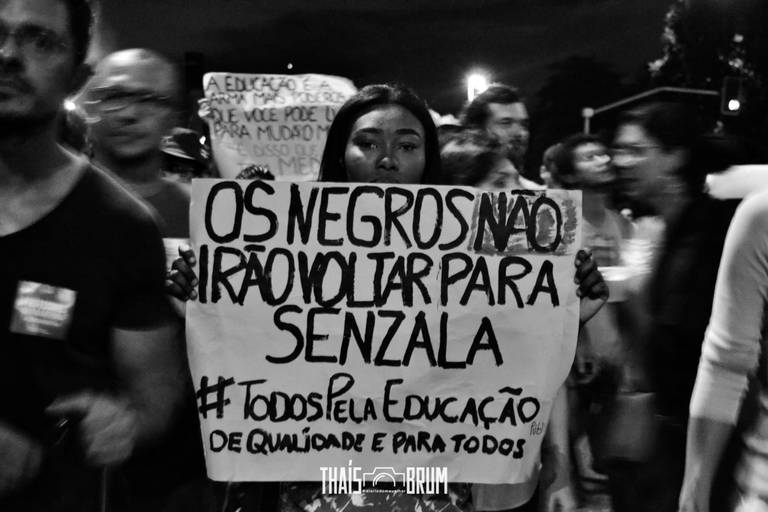 A EDUCAÇÃO É A
ARMA MAIS PODEROSA
QUE VOCÊ PODE
PARA MUDAR O M
É DISSO QUE
MEDO
OS NEGROS NÃO
IRÃO VOLTAR PARA
SENZALA
#TODOS PELA EDUCAÇÃO
DE QUALIDADE E PARA TODOS
THAÍS BRUM